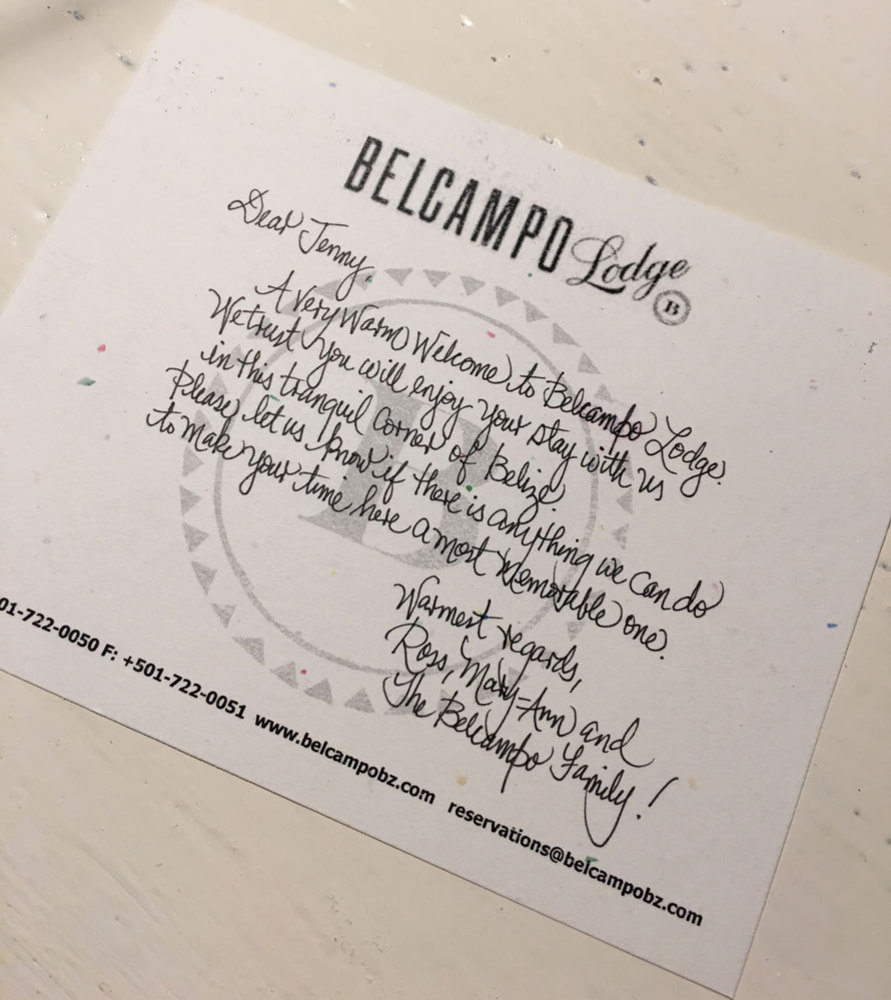 BELCAMPO Lodge
B
Dear Jenny,
A Very Warm Welcome to Belcampo Lodge.
We trust you will enjoy your stay with us
in this tranquil corner of Belize.
Please let us know if there is anything we can do
to make your time here a most memorable one.
Warmest regards,
Ross, Mary-Ann and
The Belcampo Family!
01-722-0050 F: +501-722-0051 www.belcampobz.com reservations@belcampobz.com